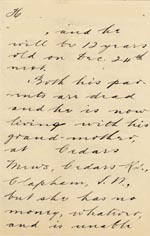 H
, and he
will be 12 years
old on Dec. 24th
next.
Both his par-
ents are dead
and he is now
living with his
grand-mother,
at Cedars
Mews, Cedars Rd.,
Clapham, S.W.,
but she has no
money, whatever,
and is unable